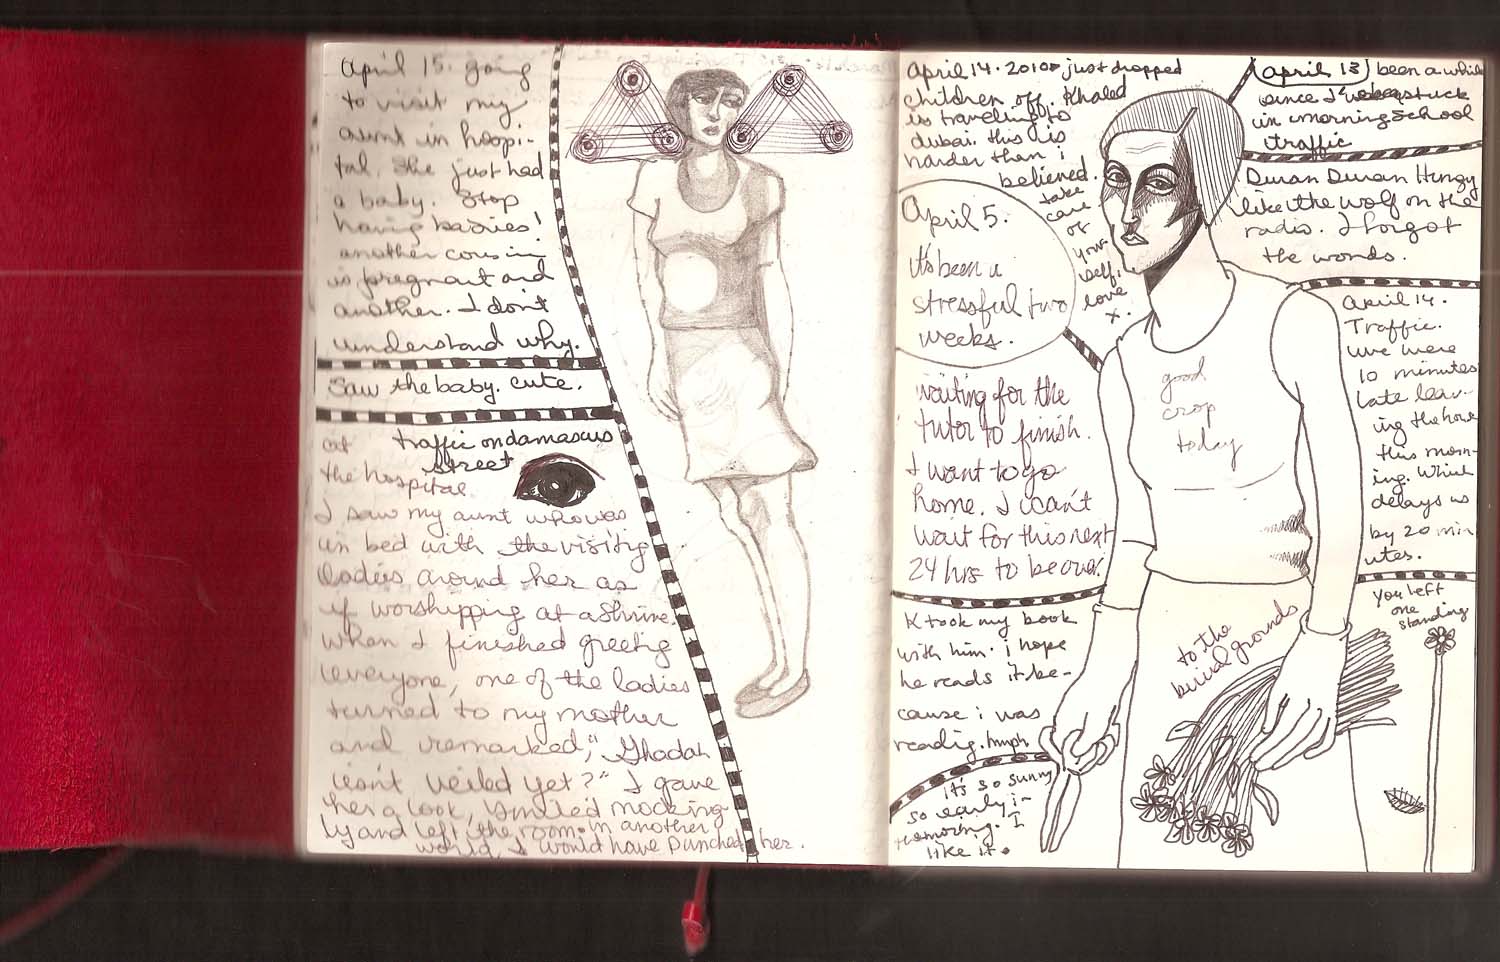 April 15. going
to visit my
aunt in hospi-
tal. She just had
a baby. Stop
having babies!
another cousin
is pregnant and
another. I don't
understand why.
Saw the baby. cute.
traffic on damascus
street
at
the hospital
I saw my aunt who was
in bed with the visiting
ladies around her as
if worshipping at a shrine.
When I finished greetig
everyone, one of the ladies
turned to my mother
and remarked, "Ghadah
isn't veiled yet?" I gave
her a look, smiled mocking
ly and left the room. in another
world, I would have punched her.
April 14. 2010 just dropped
children off. Khaled
is traveling to
dubai. this is
harder than i
believed.
take
care
of
your
self.
love
x.
April 5.
It's been a
stressful two
weeks.
waiting for the
tutor to finish.
I want to go
home. I can't
wait for this next
24 hrs to be over.
K took my book
with him. i hope
he reads it be-
cause i was
readig. hmph
it's so sunny
so early in
the morning. I
like it.
April 13) been a while
since I was stuck
in morning school
traffic
Duran Duran Hungry
like the wolf on the
radio. I forgot
the words.
April 14.
Traffic.
we were
10 minutes
late leav-
ing the house
this morn-
ing. Which
delays us
by 20 min
utes.
good
crop
today
to the
burial grounds
you left
one
standing